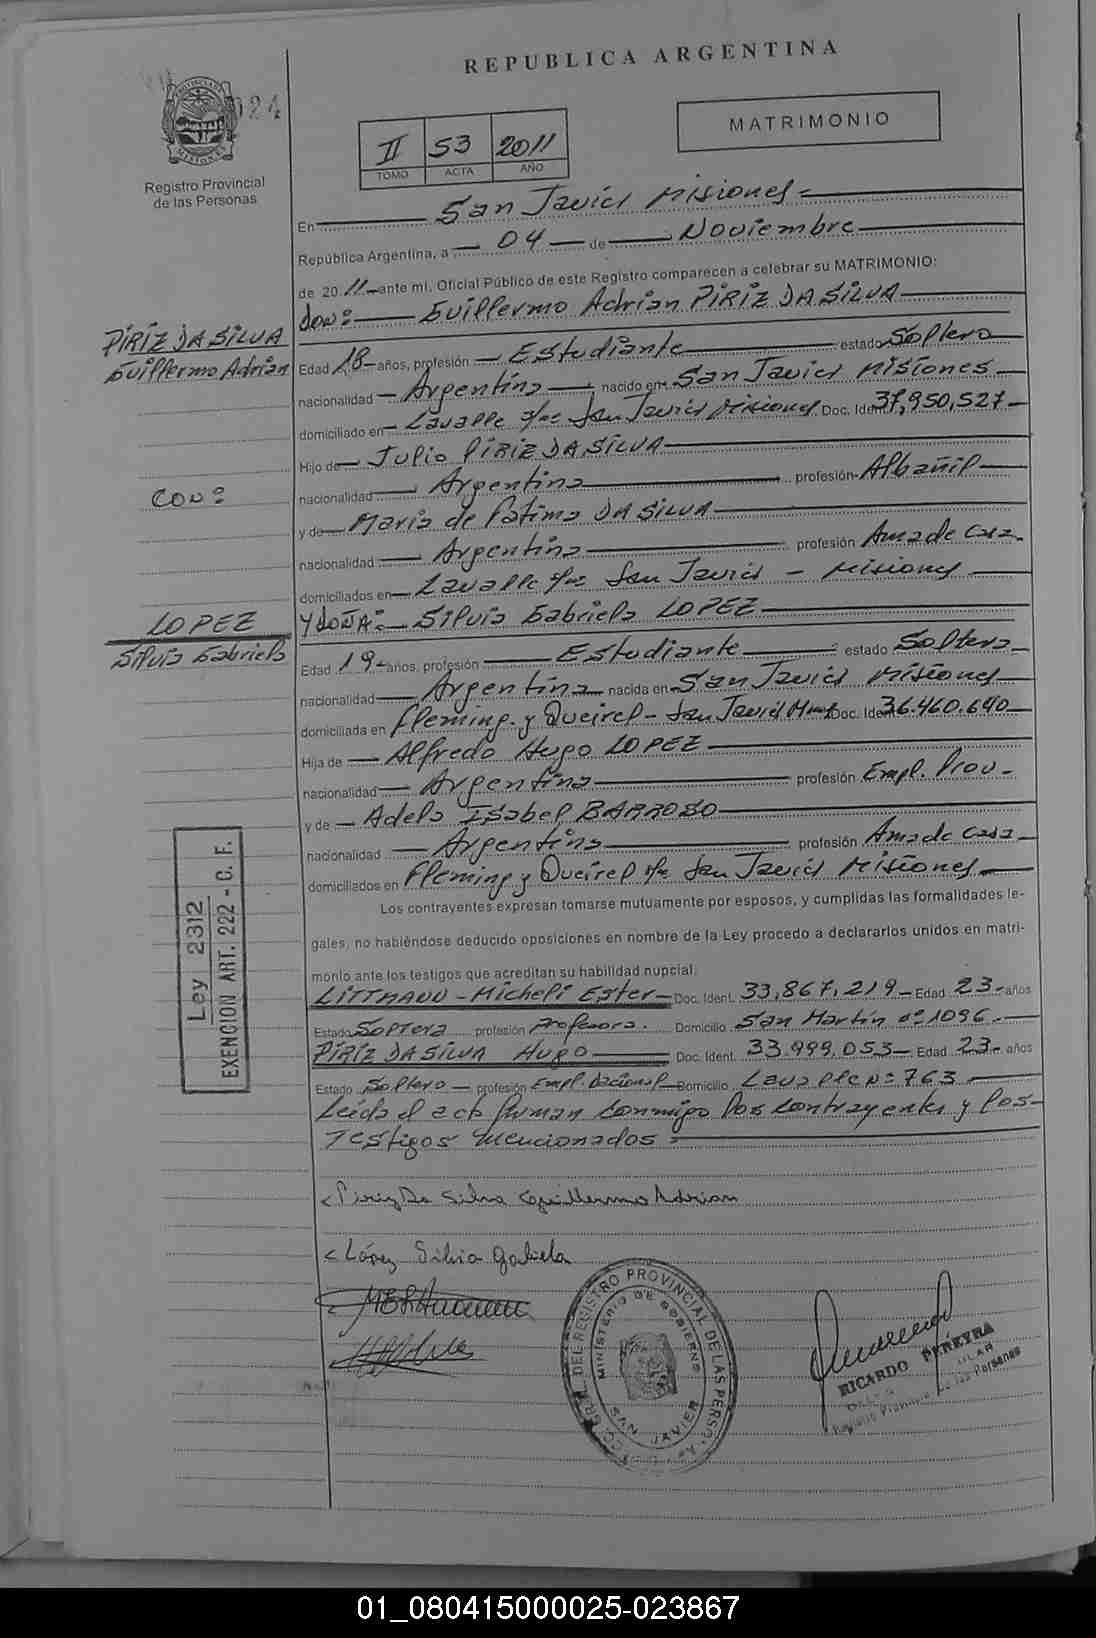 REPUBLICA ARGENTINA
024
MISIONES
Registro Provincial
de las Personas
II 53 2011
TOMO ACTA AÑO
MATRIMONIO
En San Javier Misiones
República Argentina, a 04 de Noviembre
de 2011 ante mi, Oficial Público de este Registro comparecen a celebrar su MATRIMONIO:
DON: Guillermo Adrián PIRIZ DA SILVA
PIRIZ DA SILVA
Guillermo Adrián
Edad 18 años, profesión Estudiante estado Soltero
nacionalidad Argentina nacido en San Javier Misiones
domiciliado en Lavalle San Javier Misiones Doc. Ident 37,950,527
Hijo de Julio PIRIZ DA SILVA
CON:
nacionalidad Argentina profesión Albañil
y de Maria de Fatima DA SILVA
nacionalidad Argentina profesión Ama de Casa
domiciliados en Lavalle San Javier - Misiones
LOPEZ
Silvia Gabriela
Y DOÑA: Silvia Gabriela LOPEZ
Edad 19 años, profesión Estudiante estado Soltera
nacionalidad Argentina nacida en San Javier Misiones
domiciliada en Fleming y Queirel - San Javier Doc. Ident 36.460.640
Hija de Alfredo Hugo LOPEZ
nacionalidad Argentina profesión Empl. Prov
y de Adela Isabel BARROSO
nacionalidad Argentina profesión Ama de Casa
domiciliados en Fleming y Queirel San Javier Misiones
Los contrayentes expresan tomarse mutuamente por esposos, y cumplidas las formalidades le-
gales, no habiéndose deducido oposiciones en nombre de la Ley procedo a declararlos unidos en matri-
monio ante los testigos que acreditan su habilidad nupcial:
LITTMANN - Micheli Ester Doc. Ident. 33,867,219 Edad 23 años
Estado Soltera profesión Profesora. Domicilio San Martín nº 1096
PIRIZ DA SILVA Hugo Doc. Ident. 33.999.053 Edad 23 años
Estado Soltero profesión Empl. Nacional Domicilio Lavalle Nº 763
Leída el acta firman conmigo los contrayentes y los
Testigos mencionados
Ley 2312
EXENCION ART. 222 - C. F.
Piriz Da Silva Guillermo Adrian
López Silvia Gabriela
DEL REGISTRO PROVINCIAL DE LAS PERSONAS
MINISTERIO DE GOBIERNO
SAN JAVIER
RICARDO PEREYRA
Registro Provincial de las Personas
01_080415000025-023867